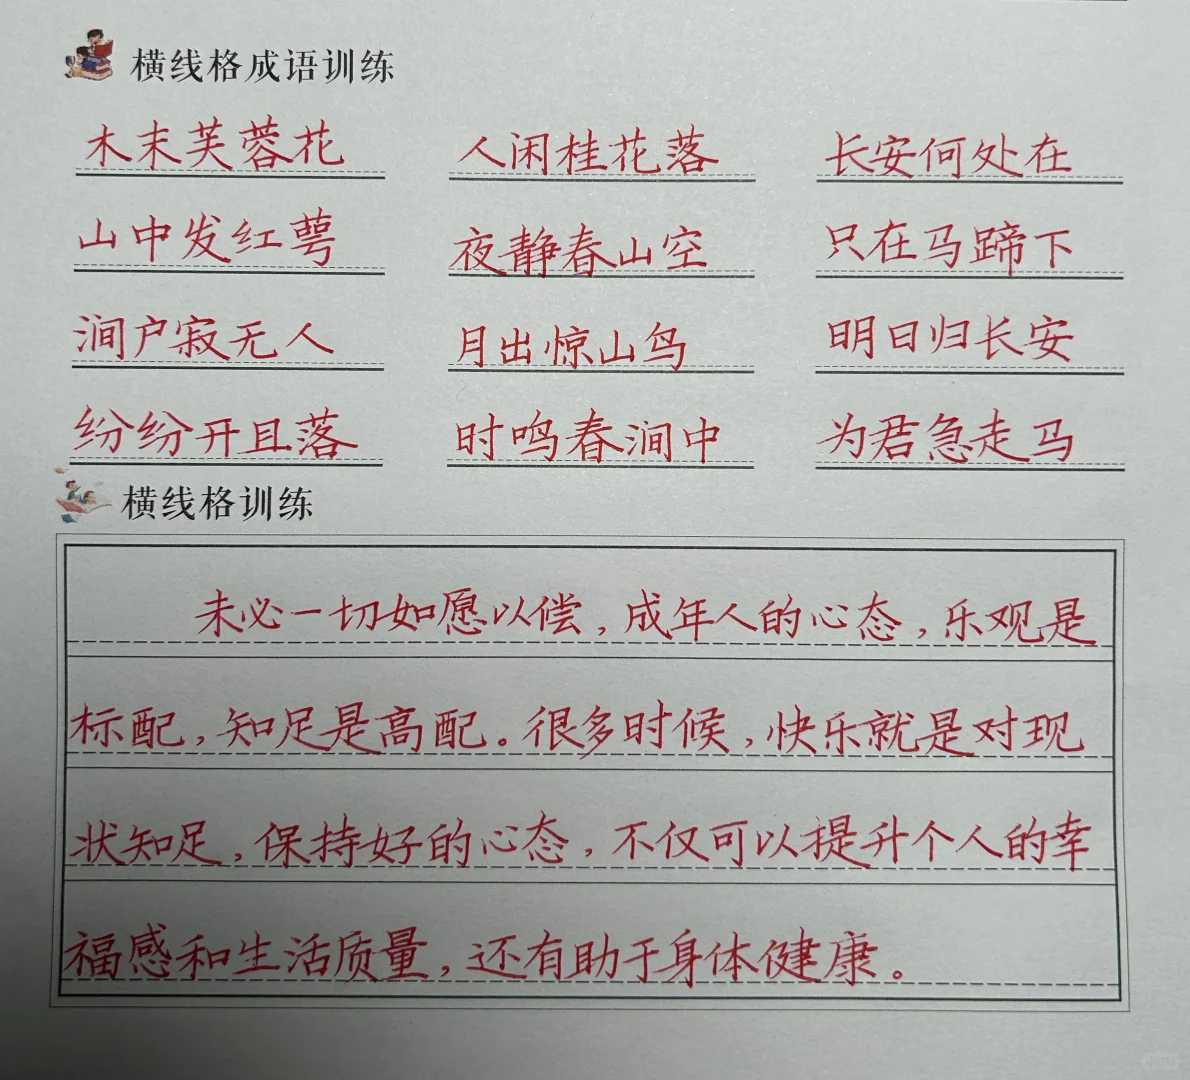 横线格成语训练
木末芙蓉花 人闲桂花落 长安何处在
山中发红萼 夜静春山空 只在马蹄下
涧户寂无人 月出惊山鸟 明日归长安
纷纷开且落 时鸣春涧中 为君急走马
横线格训练
未必一切如愿以偿，成年人的心态，乐观是
标配，知足是高配。很多时候，快乐就是对现
状知足，保持好的心态，不仅可以提升个人的幸
福感和生活质量，还有助于身体健康。